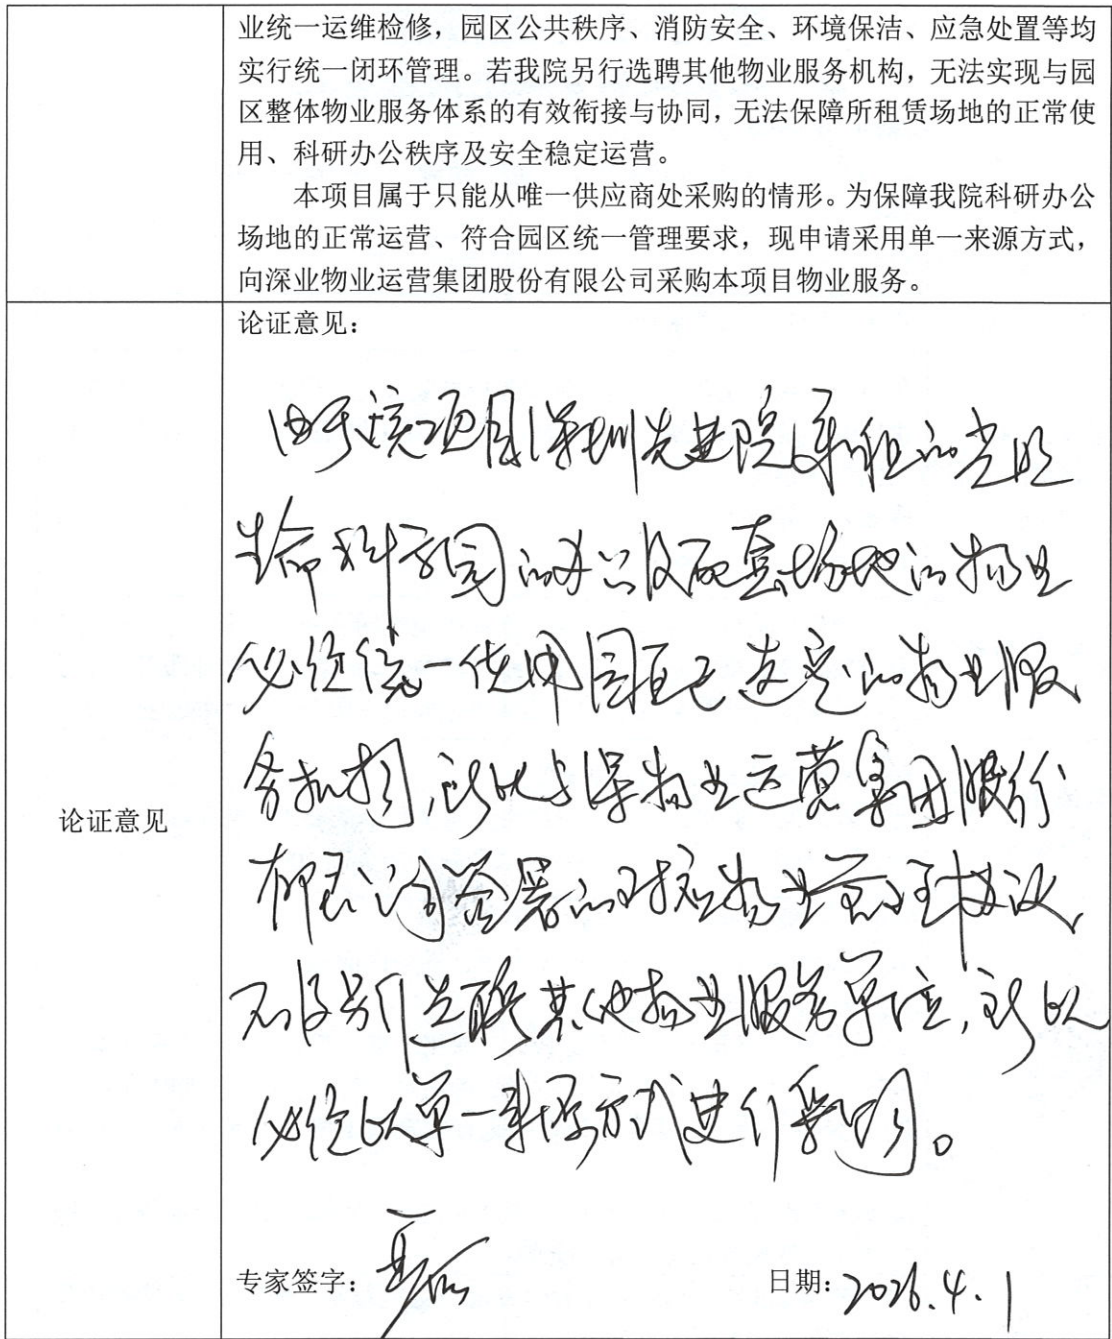 业统一运维检修，园区公共秩序、消防安全、环境保洁、应急处置等均
实行统一闭环管理。若我院另行选聘其他物业服务机构，无法实现与园
区整体物业服务体系的有效衔接与协同，无法保障所租赁场地的正常使
用、科研办公秩序及安全稳定运营。
本项目属于只能从唯一供应商处采购的情形。为保障我院科研办公
场地的正常运营、符合园区统一管理要求，现申请采用单一来源方式，
向深业物业运营集团股份有限公司采购本项目物业服务。
论证意见
论证意见：
由于该项目深圳先进院承租的光明
生命科学园的办公及配套场地的物业
必须统一使用园区已选定的物业服
务机构，所以与深物业运营集团股份
有限公司签署的对应物业管理协议，
不得另行选聘其他物业服务单位，所以
必须以单一来源方式进行采购。
专家签字：
日期：2026.4.1